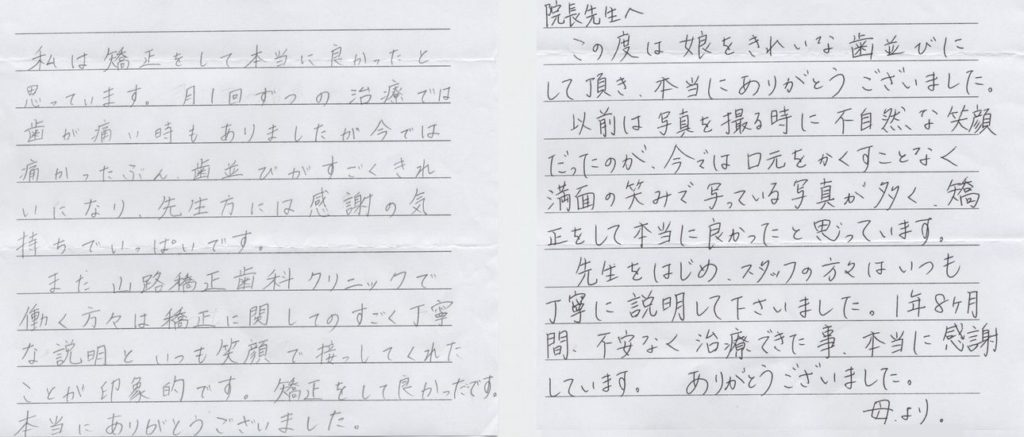 私は矯正をして本当に良かったと
思っています。月1回ずつの治療では
歯が痛い時もありましたが今では
痛かったぶん、歯並びがすごくきれ
いになり、先生方には感謝の気
持ちでいっぱいです。
また山路矯正歯科クリニックで
働く方々は矯正に関してのすごく丁寧
な説明といつも笑顔で接っしてくれた
ことが印象的です。矯正をして良かったです。
本当にありがとうございました。
院長先生へ
この度は娘をきれいな歯並びに
して頂き、本当にありがとうございました。
以前は写真を撮る時に不自然な笑顔
だったのが、今では口元をかくすことなく
満面の笑みで写っている写真が多く、矯
正をして本当に良かったと思っています。
先生をはじめ、スタッフの方々はいつも
丁寧に説明して下さいました。1年8ヶ月
間、不安なく治療できた事、本当に感謝
しています。 ありがとうございました。
母より。